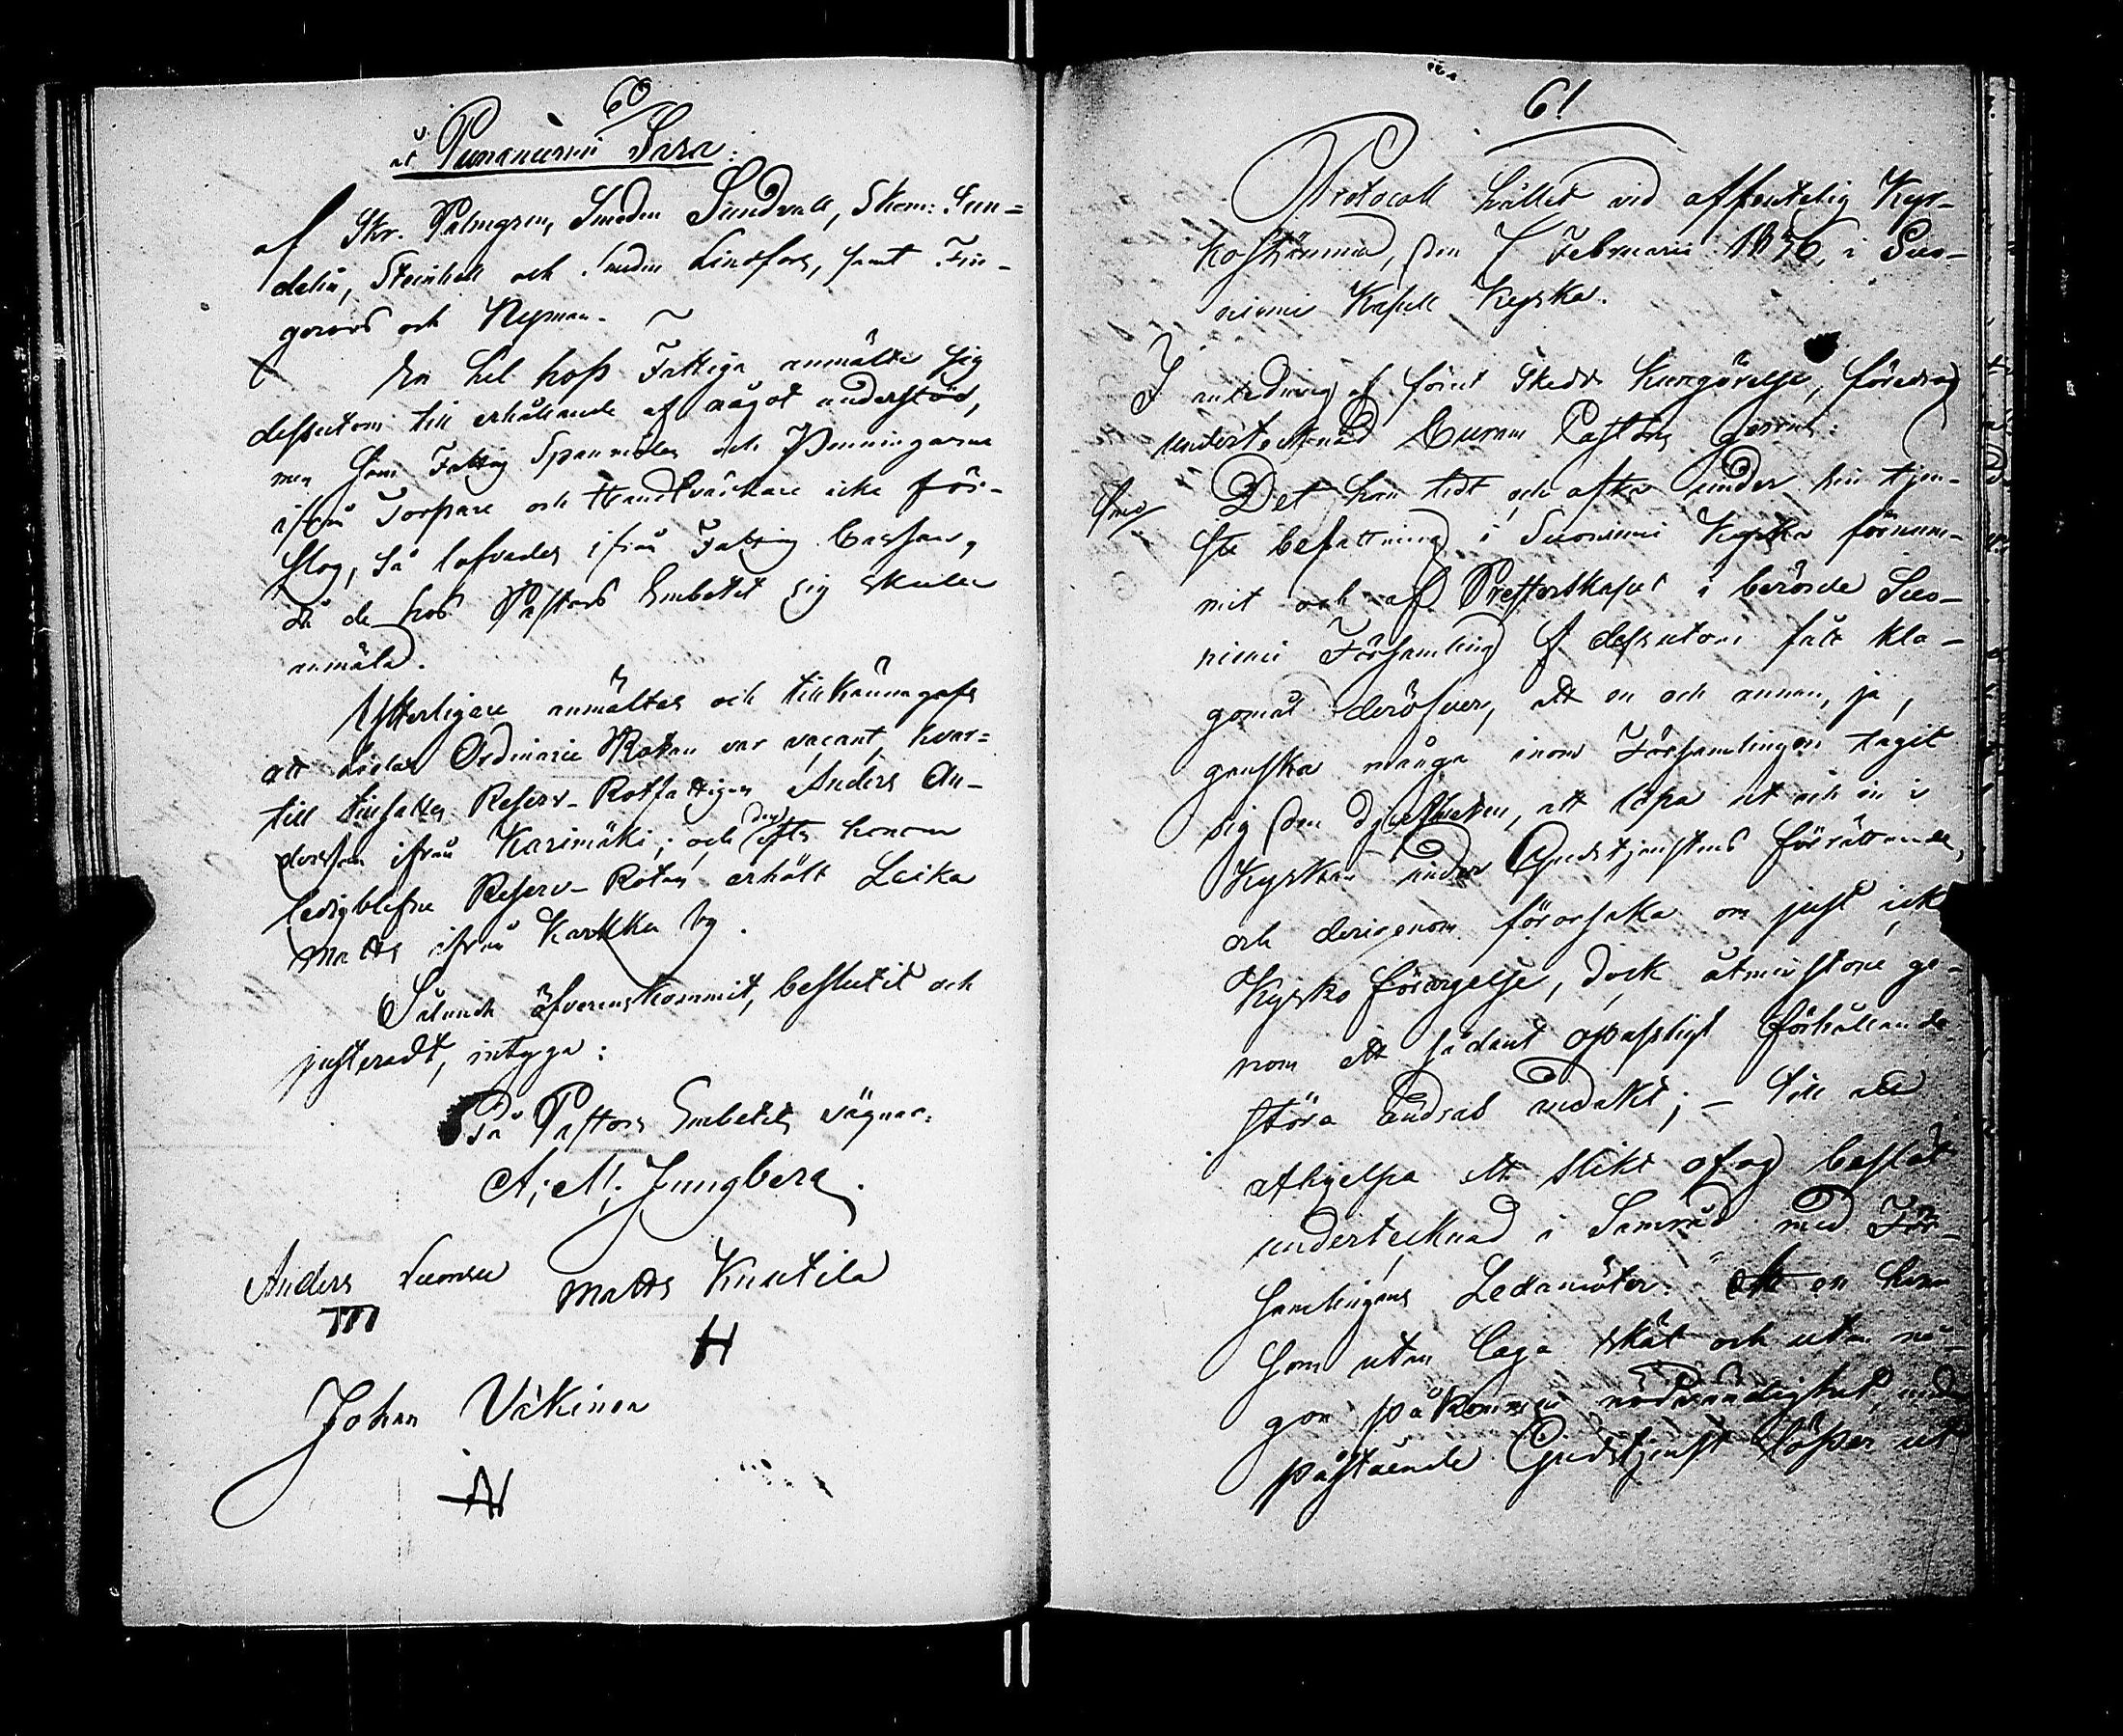 60
åt Punanurmi Sara:
af Skr. Palmgren, Smeden Sundvall, Skom: Sun=
delin, Steinhell och Smeden Lindfors, samt Fin-
geroos och Nyman.
En hel hop Fattiga anmälte sig
dessutom till erhållande af något understöd,
men som Fattig Spanmålen och Penningarne
ifrån Torpare och Handtvärkare icke för-
slog, så lofvades ifrån Fattig Cassan,
då de hos Pastors Embetet sig skulle
anmäla.
Ytterligare anmältes och tillkännagafs
att Ordinarie Rotan var vacant, hvar=
till tillsattes Reserv-Rotfattigen Anders An-
dersson ifrån Karimäki; och den efter honom
ledigblefne Reserv-Rotan erhölt Leika
Matts ifrån Karkku by.
Sålunde öfverenskommit, beslutit och
justeradt, intyga:
På Pastors Embetets vägnar:
A: M: Jungberg.
Anders Matts Knutila
m
H
Johan Väkinen
AV
61
Protocoll hållit vid offentelig Kyr-
kostämma, den 7 Februarii 1836, i Suo-
niemi Kapell Kyrka.
I anledning af förut skedd Kungörelse, föredrog
undertecknad Curam Pastoris gerens:
§mo Det han tidt och ofta under sin tjen-
ste befattning i Suoniemi Kyrka förnum-
mit och af Presterskapet i berörde Suo-
niemi Församling dessutom fått kla-
gomål deröfver, att en och annan, ja,
ganska många inom Församlingen tagit
sig den djerfheten, att löpa ut och in i
Kyrkan under Gudstjenstens förrättande,
och derigenom förorsaka om just icke
Kyrko förargelse, dock åtminstone ge-
nom ett sådant opassligt förhållande
störa andras andakt; – till att
afhjelpa ett slikt ofog beslöt
undertecknad i Samråd med För-
samlingens Ledamöter: att en hvar
som utan laga skäl och utan nå-
gon påkommen nödvändighet, under
påstående Gudstjenst löper ut